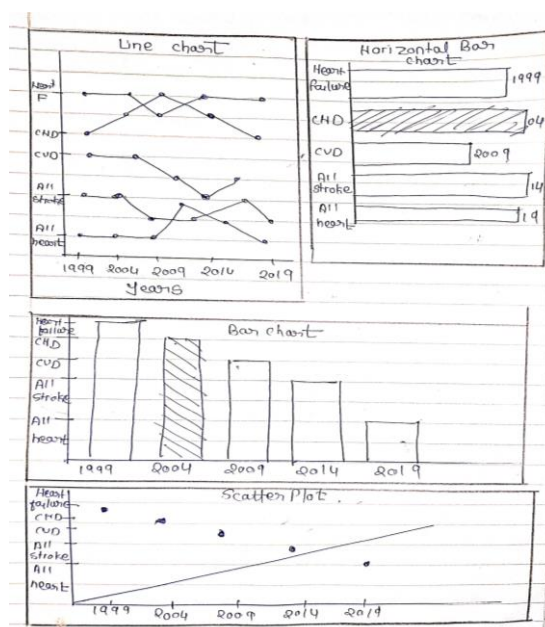 Line chart
Heart
F
CHD
CVD
All
stroke
All
heart
1999 2004 2009 2014 2019
Years
Horizontal Bar
chart
Heart
failure
1999
CHD
04
CVD
2009
All
stroke
14
All
heart
19
Bar chart
Heart
failure
CHD
CVD
All
stroke
All
heart
1999 2004 2009 2014 2019
Scatter Plot
Heart
failure
CHD
CVD
All
stroke
All
heart
1999 2004 2009 2014 2019